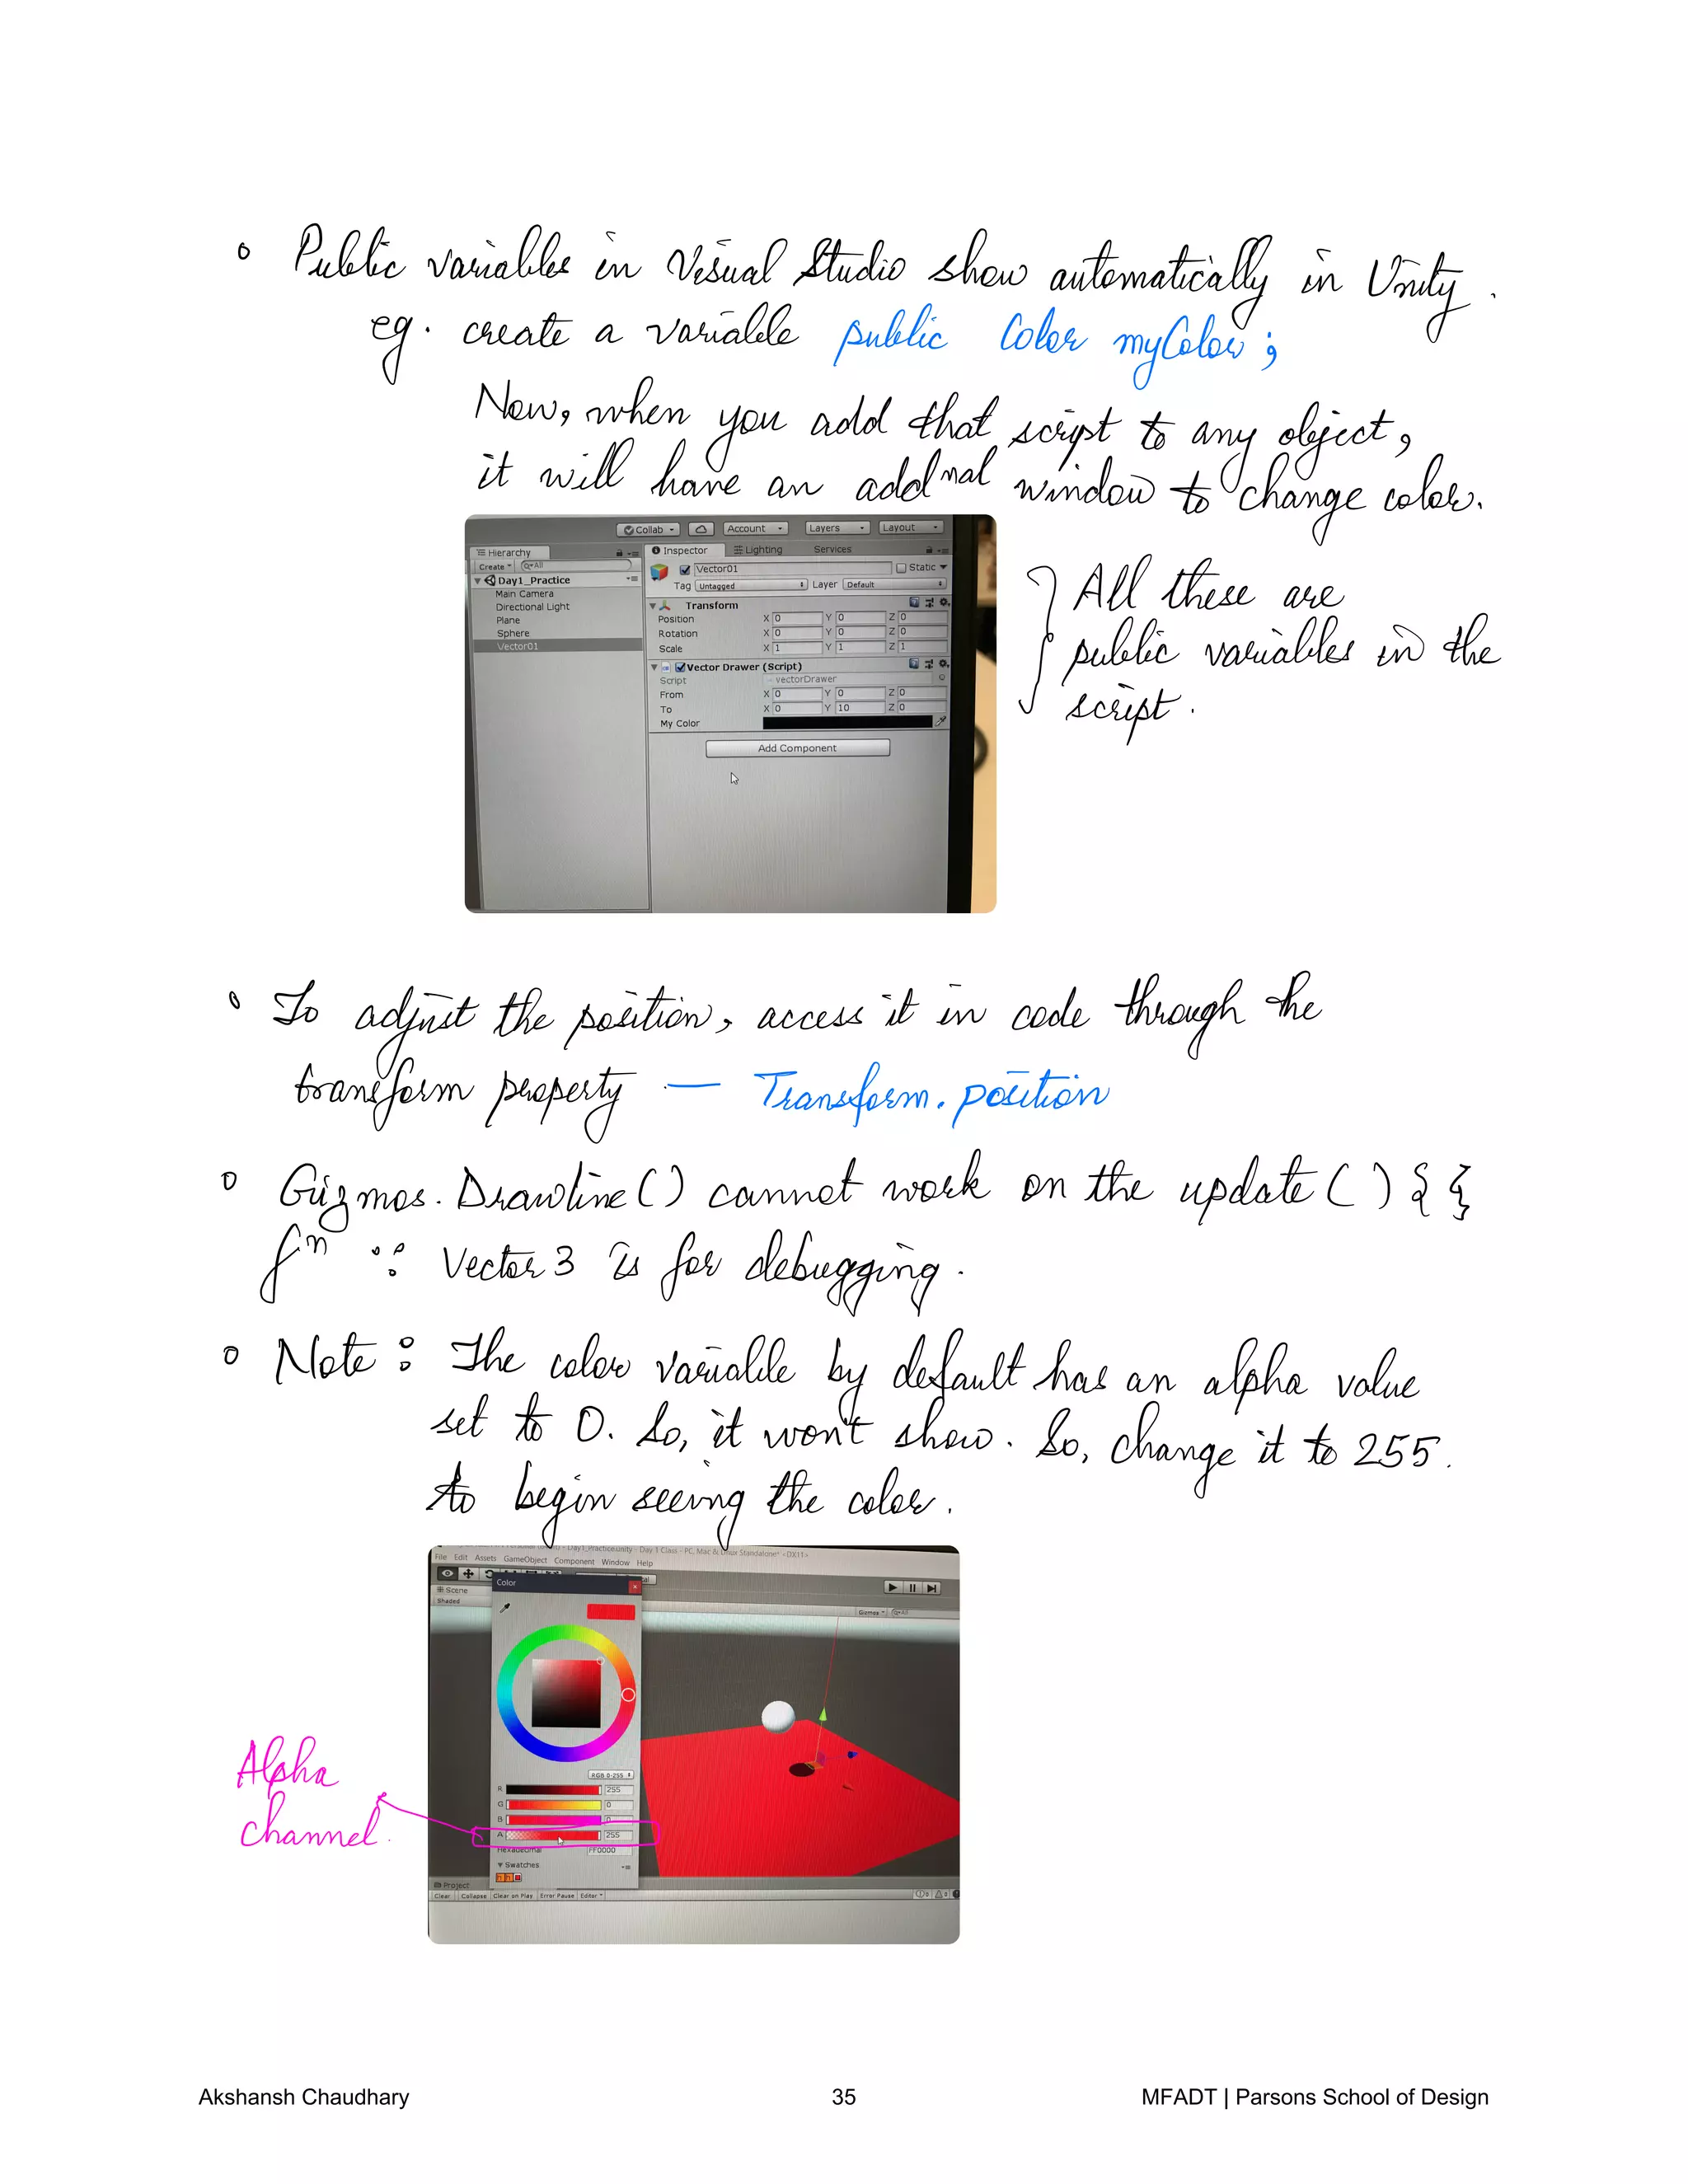 Public variables in Visual Studio show automatically in Unity.
eg. create a variable public Color myColor;
Now, when you add that script to any object,
it will have an addnal window to change color.
Collab
Account
Layers
Layout
Hierarchy
Inspector
Lighting
Services
Create
All
Vector01
Static
Day1_Practice
Tag Untagged
Layer Default
Main Camera
Directional Light
Plane
Sphere
Vector01
Transform
Position X 0 Y 0 Z 0
Rotation X 0 Y 0 Z 0
Scale X 1 Y 1 Z 1
Vector Drawer (Script)
Script vectorDrawer
From X 0 Y 0 Z 0
To X 0 Y 10 Z 0
My Color
Add Component
All these are
public variables in the
script.
To adjust the position, access it in code through the
transform property — Transform.position
Gizmos.Drawline() cannot work on the update() { }
fn ∵ Vector3 is for debugging.
Note: The color variable by default has an alpha value
set to 0. So, it won't show. So, change it to 255.
to begin seeing the color.
Day1_Practice.unity - Day 1 Class - PC, Mac & Linux Standalone* <DX11>
File Edit Assets GameObject Component Window Help
Color
Scene
Shaded
Gizmos
All
RGB 0-255
R 255
G 0
B 0
A 255
Hexadecimal FF0000
Swatches
Project
Clear Collapse Clear on Play Error Pause Editor
Alpha
channel.
Akshansh Chaudhary
35
MFADT | Parsons School of Design